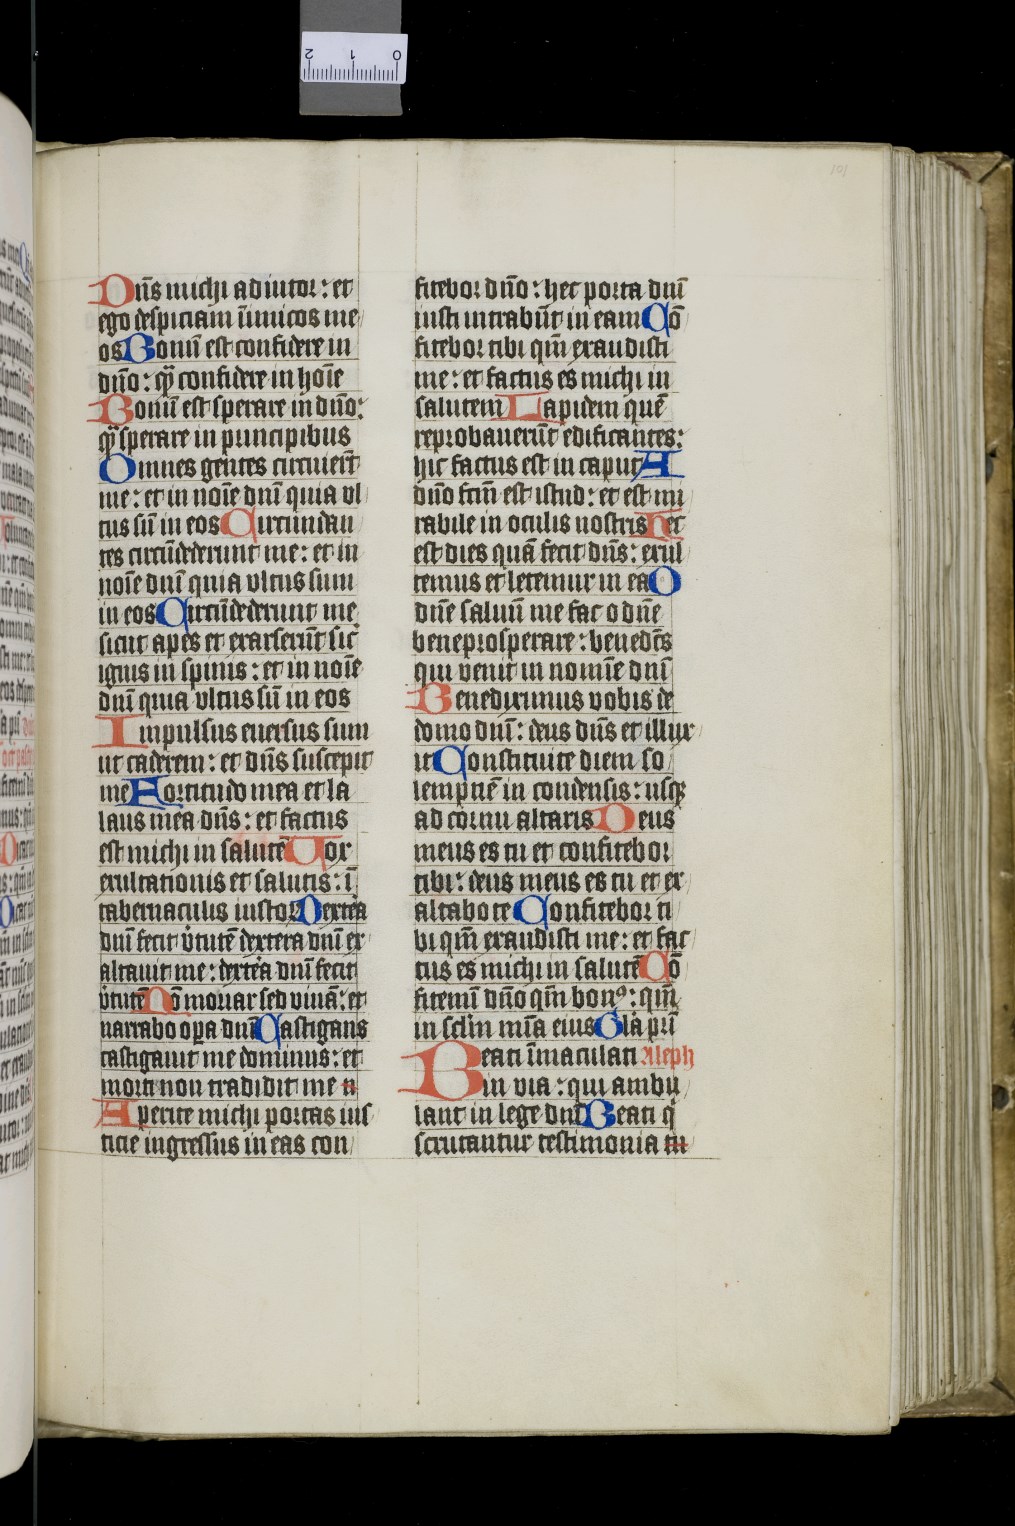 Dn̄s michi adiutor: et
ego despiciam īimicos me
os Bonū est confidere in
dn̄o: qͣ confidere in hoīe
Bonū est sperare in dn̄o:
qͣ sperare in principibus
Omnes gentes circuierūt
me: et in noīe dnī quia vl
tus sū in eos Circumdan
tes circūdederunt me: et in
noīe dnī quia vltus sum
in eos Circūdederunt me
sicut apes et exarserūt sic̄
ignis in spinis: et in noīe
dnī quia vltus sū in eos
Impulsus euersus sum
ut caderem: et dn̄s suscepit
me Fortitudo mea et la
laus mea dn̄s: et factus
est michi in salutē Vox
exultationis et salutis: ī
tabernaculis iustoꝝ Dextēa
dnī fecit v̄tutē dextera dnī ex
altauit me: dextēa dnī fecit
v̄tutē Nō moriar sed viuā: et
narrabo oꝑa dnī Castigans
castigauit me dominus: et
morti non tradidit me n
Aperite michi portas ius
ticie ingressus in eas con
fitebor dn̄o: hec porta dnī
iusti intrabūt in eam Cō
fitebor tibi qm̄ exaudisti
me: et factus es michi in
salutem Lapidem quē
reprobauerūt edificantes:
hic factus est in caput A
dn̄o fctm̄ est istud: et est mi
rabile in oculis nostris Hec
est dies quā fecit dn̄s: exul
temus et letemur in ea O
dn̄e saluū me fac o dn̄e
beneprosperare: benedc̄s
qui venit in nomīe dnī
Benediximus vobis de
domo dnī: deus dn̄s et illux
it Constituite diem so
lempnē in condensis: usqꝫ
ad cornu altaris Deus
meus es tu et confitebor
tibi: deus meus es tu et ex
altabo te Confitebor ti
bi qm̄ exaudisti me: et fac
tus es michi in salutē Cō
fitemī dn̄o qm̄ bonꝰ: qm̄
in sclm̄ mīa eius Gla prī
Beati īmaculati Aleph
in via: qui ambu
lant in lege dnī Beati q̄
scrutantur testimonia tu
101
2 1 0